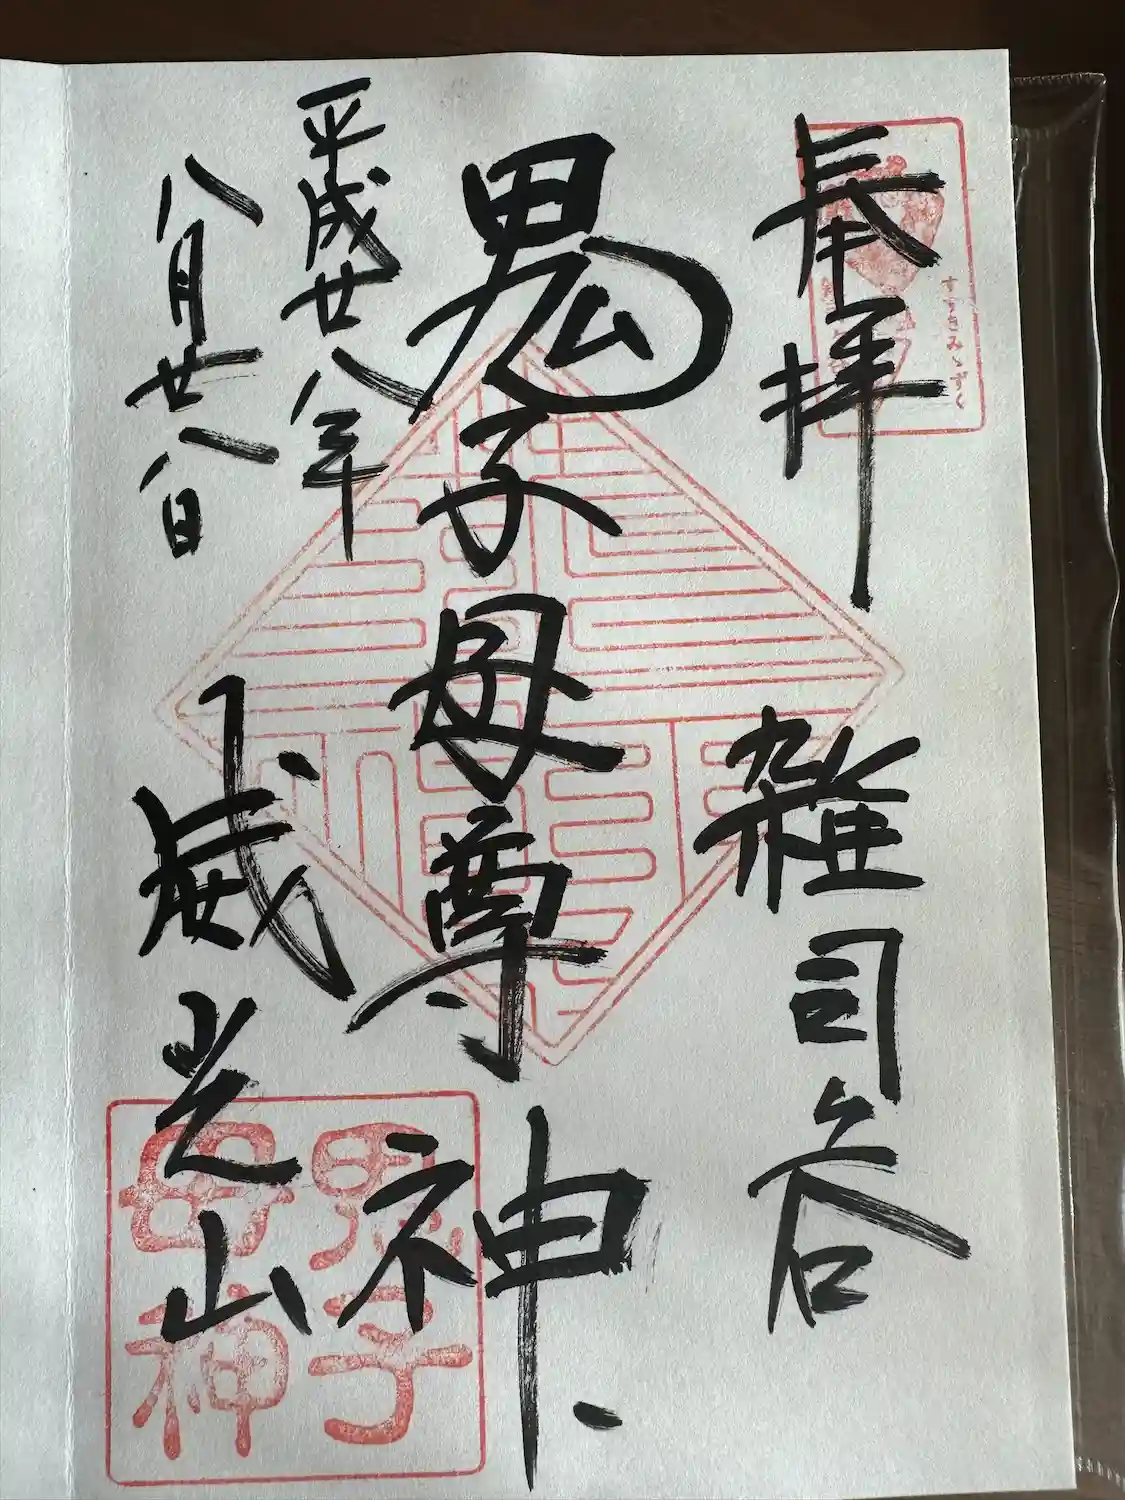 奉拝 雑司谷
すすきみみずく
鬼子母尊神
平成廿八年
八月廿八日
威光山
鬼子
母神